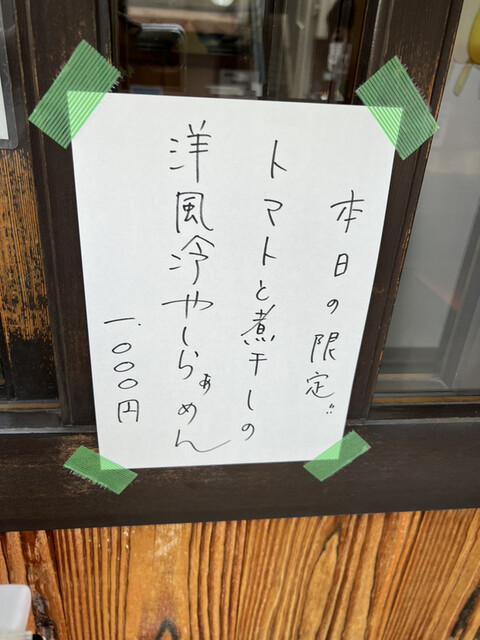 本日の限定!!
トマトと煮干しの
洋風冷やしらぁめん
一.〇〇〇円